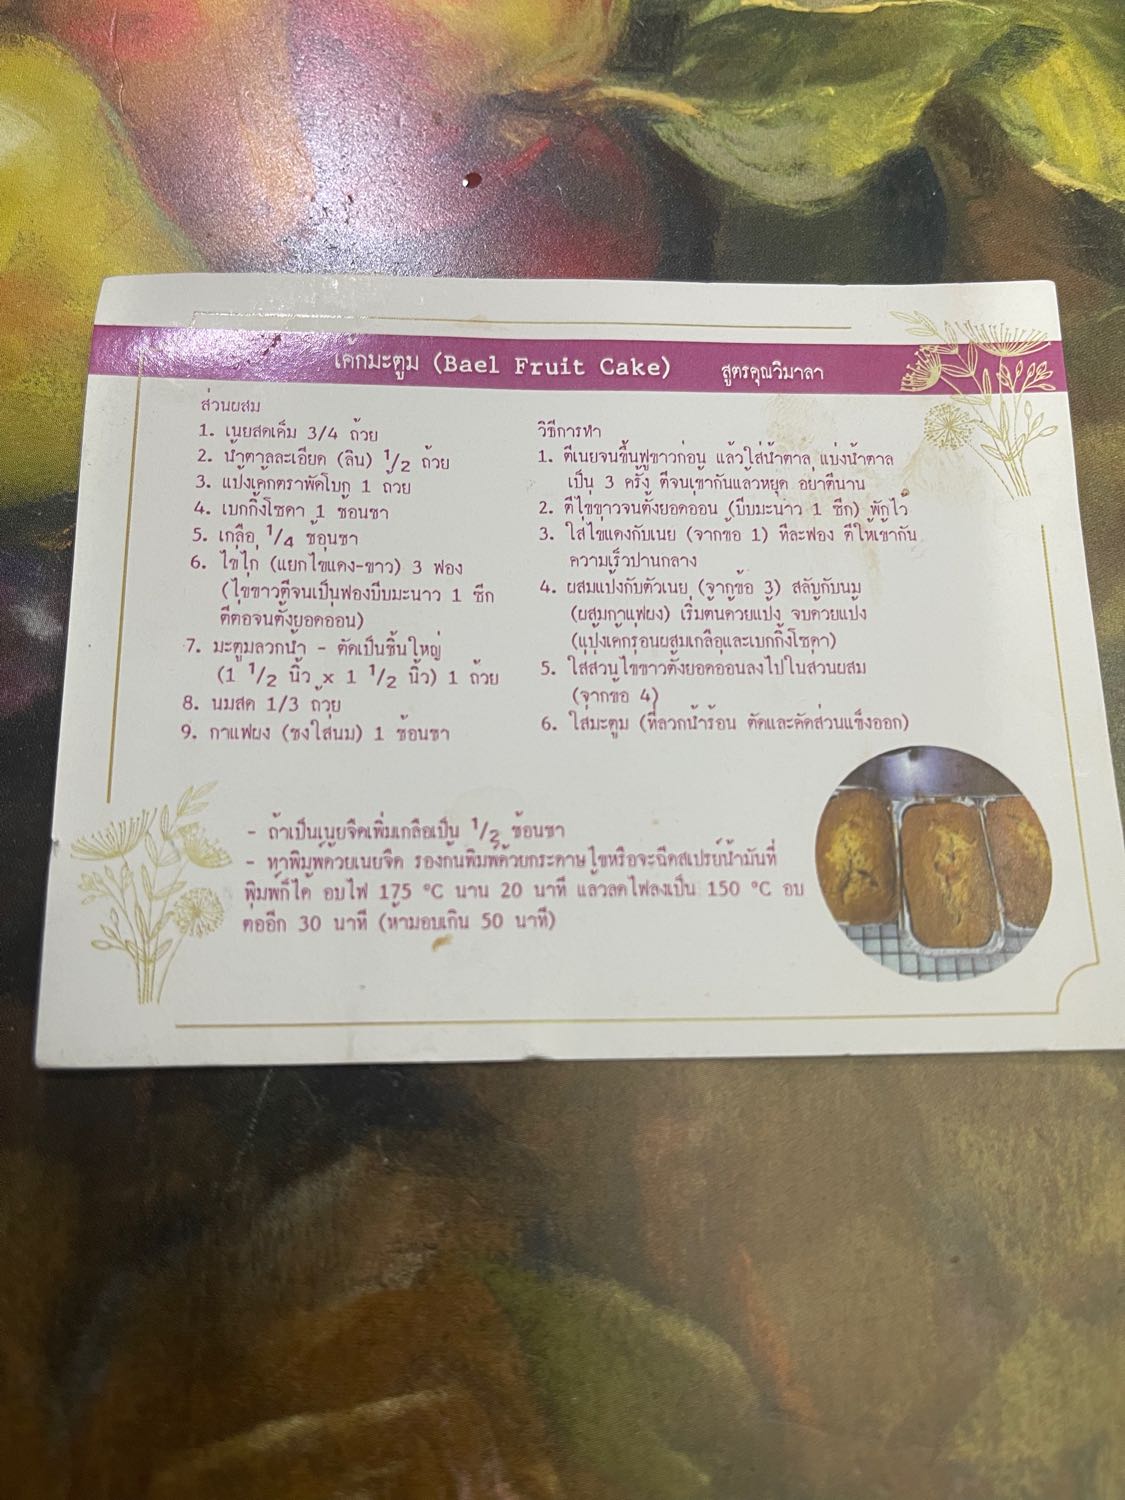 เค้กมะตูม (Bael Fruit Cake) สูตรคุณวิมาลา
ส่วนผสม
1. เนยสดเค็ม 3/4 ถ้วย
2. น้ำตาลละเอียด (ลิน) 1/2 ถ้วย
3. แป้งเค้กตราพัดโบก 1 ถวย
4. เบกกิ้งโซดา 1 ช้อนชา
5. เกลือ 1/4 ช้อนชา
6. ไข่ไก่ (แยกไข่แดง-ขาว) 3 ฟอง
(ไข่ขาวตีจนเป็นฟองบีบมะนาว 1 ซีก
ตีต่อจนตั้งยอดอ่อน)
7. มะตูมลวกน้ำ - ตัดเป็นชิ้นใหญ่
(1 1/2 นิ้ว x 1 1/2 นิ้ว) 1 ถ้วย
8. นมสด 1/3 ถ้วย
9. กาแฟผง (ชงใส่นม) 1 ช้อนชา
วิธีการทำ
1. ตีเนยจนขึ้นฟูขาวก่อน แล้วใส่น้ำตาล แบ่งน้ำตาล
เป็น 3 ครั้ง ตีจนเข้ากันแล้วหยุด อย่าตีนาน
2. ตีไข่ขาวจนตั้งยอดอ่อน (บีบมะนาว 1 ซีก) พักไว้
3. ใส่ไข่แดงกับเนย (จากข้อ 1) ทีละฟอง ตีให้เข้ากัน
ความเร็วปานกลาง
4. ผสมแป้งกับตัวเนย (จากข้อ 3) สลับกับนม
(ผสมกาแฟผง) เริ่มต้นด้วยแป้ง จบด้วยแป้ง
(แป้งเค้กร่อนผสมเกลือและเบกกิ้งโซดา)
5. ใส่ส่วนไข่ขาวตั้งยอดอ่อนลงไปในส่วนผสม
(จากข้อ 4)
6. ใส่มะตูม (ที่ลวกน้ำร้อน ตัดและคัดส่วนแข็งออก)
- ถ้าเป็นเนยจืดเพิ่มเกลือเป็น 1/2 ช้อนชา
- ทาพิมพ์ด้วยเนยจืด รองก้นพิมพ์ด้วยกระดาษไขหรือจะฉีดสเปรย์น้ำมันที่
พิมพ์ก็ได้ อบไฟ 175 °C นาน 20 นาที แล้วลดไฟลงเป็น 150 °C อบ
ต่ออีก 30 นาที (ห้ามอบเกิน 50 นาที)